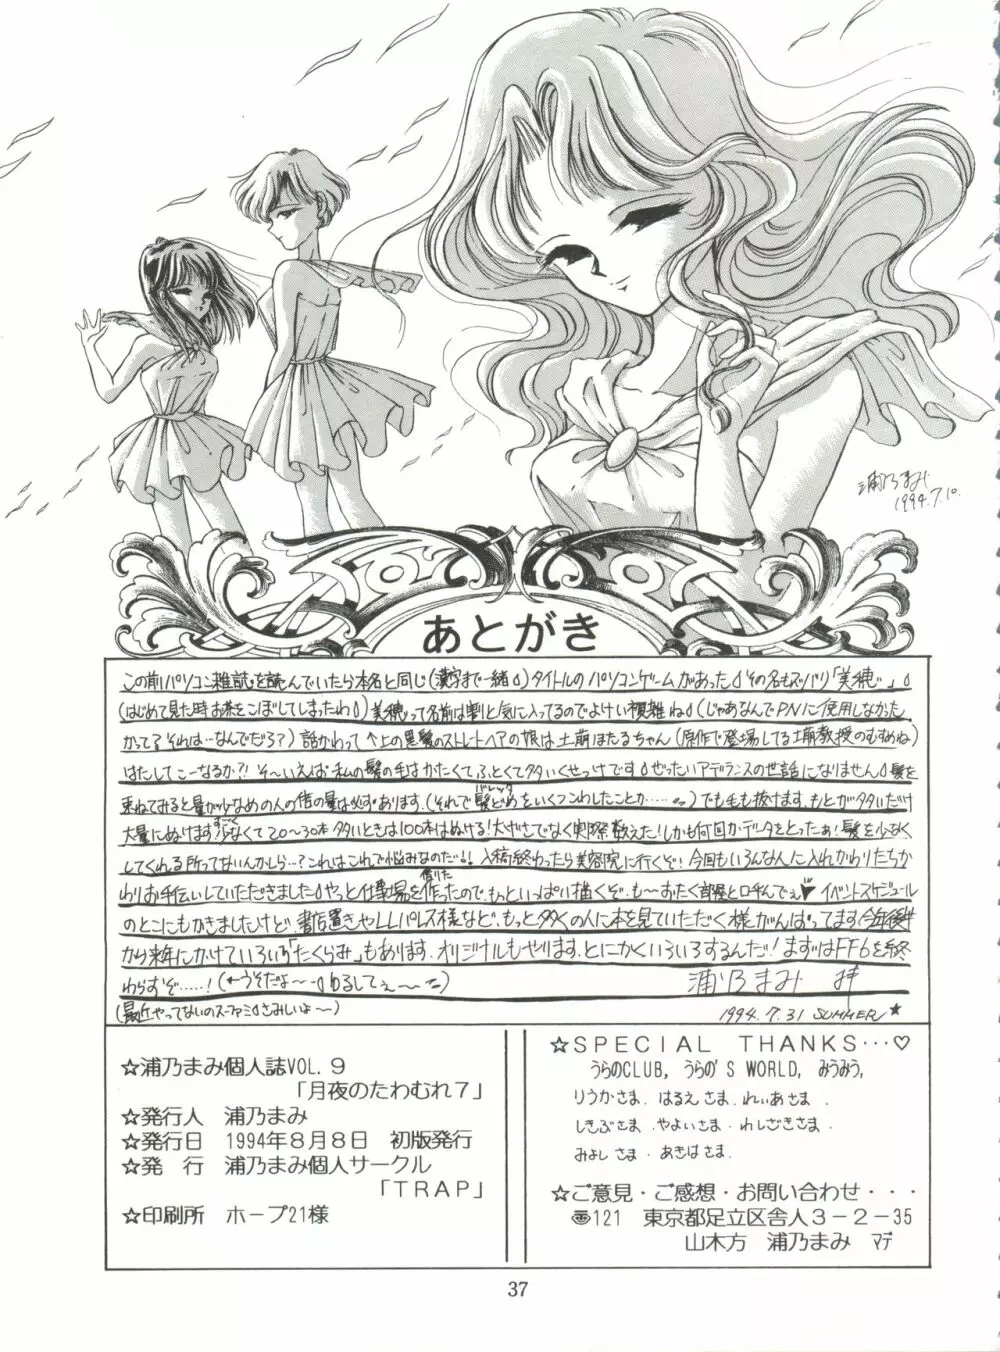 浦乃まみ
1994.7.10.
あとがき
この前パソコン雑誌を読んでいたら本名と同じ(漢字まで一緒)タイトルのパソコンゲームがあった その名もズバリ「美穂」
(はじめて見た時お茶をこぼしてしまったわ)美穂って名前は割と気に入ってるのでよけい複雑ね(じゃあなんでPNに使用しなかった
かって?それは…なんでだろ?)話かわって↑上の黒髪のストレートヘアの娘は土萠ほたるちゃん(原作で登場してる土萠教授のむすめね)
はたしてこーなるか?!そ〜いえば私の髪の毛はかたくてふとくて多いくせっ毛です ぜったいアデランスの世話になりません 髪を
束ねてみると量が少なめの人の倍の量は必ずあります。(それで髪どめをいくつこわしたことか……)でも毛も抜けます。もとが多いだけ
バレッタ
大量にぬけます 少なくて20〜30本多いときは100本はぬける!大げさでなく実際数えた!しかも何回かデータをとったぁ!髪を少なく
すごく
してくれる所ってないんかしら…?これはこれで悩みなのだ!!入稿終わったら美容院に行くぞ!今回もいろんな人に入れかわりたちか
わりお手伝いしていただきました やっと仕事場を作ったので、もっといっぱい描くぞ。も〜おたく部屋と呼んでぇ♥イベントスケジュール
借りた
のとこにもかきましたけど、書店置きやLLパレス様など、もっと多くの人に本を見ていただく様がんばってます。今年後半
から来年にかけていろいろ「たくらみ」もあります。オリジナルもやります。とにかくいろいろするんだ!まずはFF6を終
わらすぞ……!(←うそだよ〜 ゆるしてぇ〜)
浦乃まみ
(最近やってないのスーファミ さみしいよ〜)
1994.7.31 SUMMER★
☆浦乃まみ個人誌VOL.9
「月夜のたわむれ7」
☆発行人 浦乃まみ
☆発行日 1994年8月8日 初版発行
☆発 行 浦乃まみ個人サークル
「TRAP」
☆印刷所 ホープ21様
☆SPECIAL THANKS…♡
うらのCLUB, うらの'S WORLD, みうみう,
りうかさま. はるえさま. れいあさま.
しきぶさま. やよいさま. わしざきさま.
みよしさま. あきはさま.
☆ご意見・ご感想・お問い合わせ・・・
〠121 東京都足立区舎人3-2-35
山木方 浦乃まみ マデ
37